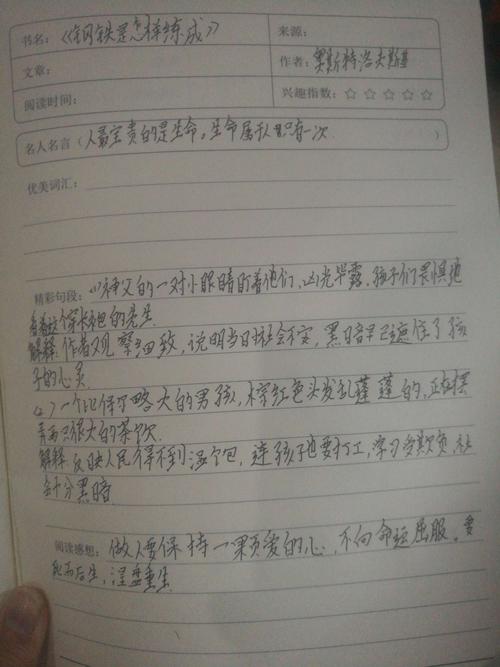 书名：《钢铁是怎样练成》
来源：
文章：
作者：奥斯特洛夫斯基
阅读时间：
兴趣指数：☆ ☆ ☆ ☆ ☆
名人名言（人最宝贵的是生命。生命属于人只有一次 ）
优美词汇：
精彩句段：(1)神父的一对小眼睛盯着他们，凶光毕露，孩子们畏惧地
看着这个穿长袍的先生
解释：作者观察细致，说明当日社会不安，黑暗早已遮住了孩
子的心灵
(2)一个比保尔略大的男孩，棕红色头发乱蓬蓬的，正在摆
弄两只很大的茶炊
解释 反映人民得不到温饱，连孩子也要打工，
会十分黑暗
阅读感想：做人要保持一颗爱的心，不向命运屈服。要
死而后生，涅盘重生